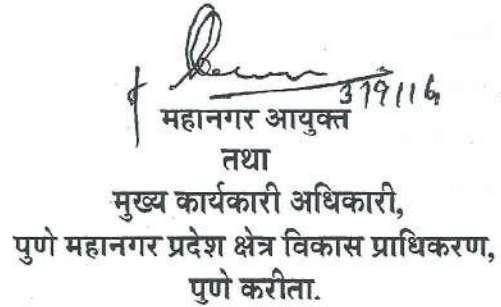 महानगर आयुक्त
तथा
मुख्य कार्यकारी अधिकारी,
पुणे महानगर प्रदेश क्षेत्र विकास प्राधिकरण,
पुणे करीता.